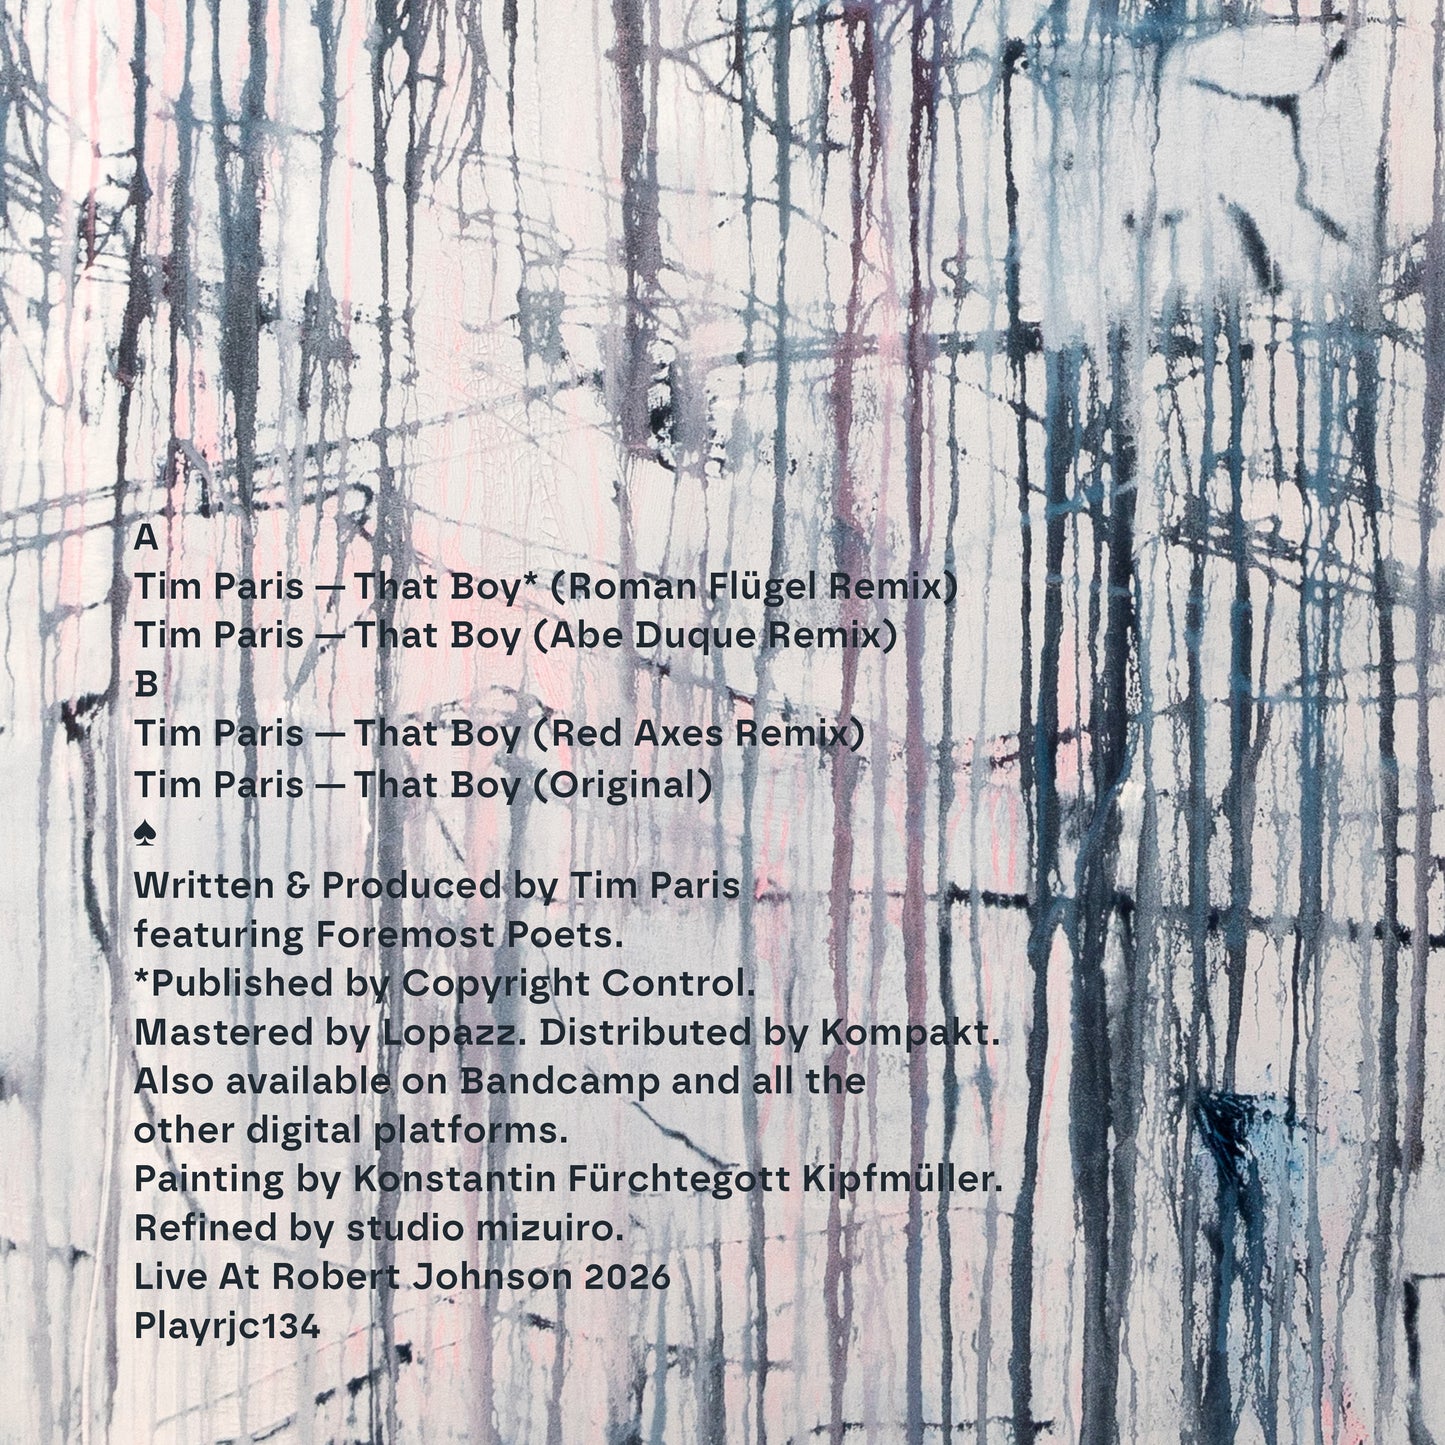 A
Tim Paris — That Boy* (Roman Flügel Remix)
Tim Paris — That Boy (Abe Duque Remix)
B
Tim Paris — That Boy (Red Axes Remix)
Tim Paris — That Boy (Original)
♠
Written & Produced by Tim Paris
featuring Foremost Poets.
*Published by Copyright Control.
Mastered by Lopazz. Distributed by Kompakt.
Also available on Bandcamp and all the
other digital platforms.
Painting by Konstantin Fürchtegott Kipfmüller.
Refined by studio mizuiro.
Live At Robert Johnson 2026
Playrjc134